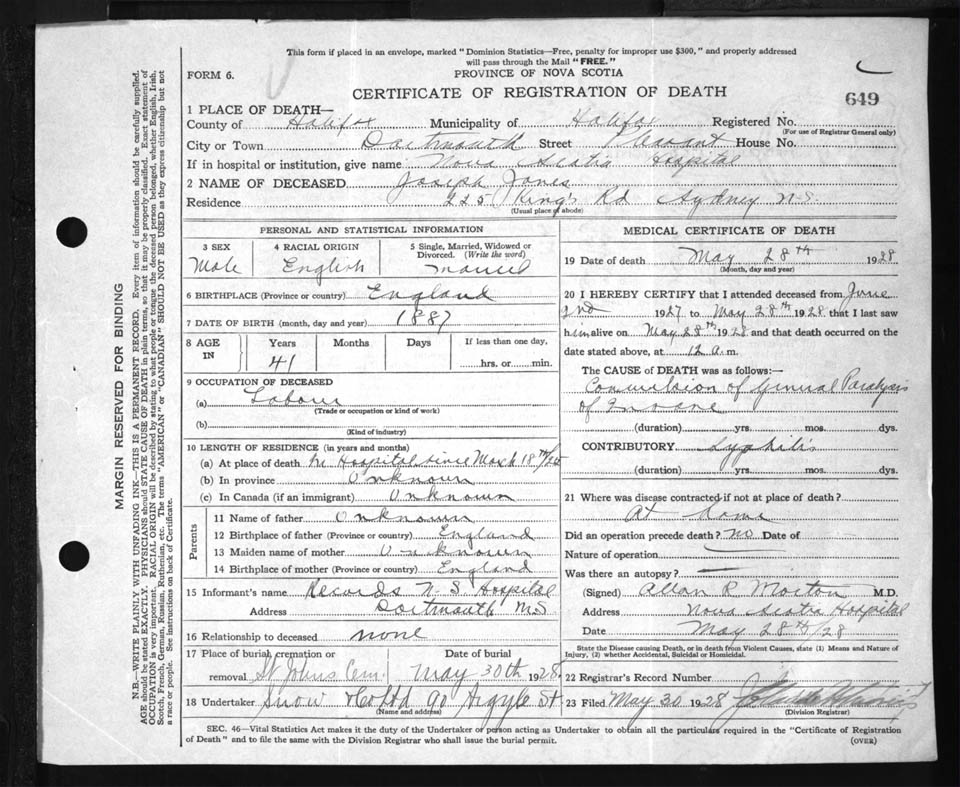 This form if placed in an envelope, marked "Dominion Statistics—Free, penalty for improper use $300," and properly addressed
will pass through the Mail "FREE."
FORM 6.
PROVINCE OF NOVA SCOTIA
CERTIFICATE OF REGISTRATION OF DEATH
649
1 PLACE OF DEATH—
County of Halifax Municipality of Halifax Registered No.
(For use of Registrar General only)
City or Town Dartmouth Street Pleasant House No.
If in hospital or institution, give name Nova Scotia Hospital
2 NAME OF DECEASED Joseph Jones
Residence 225 Kings Rd Sydney N.S.
(Usual place of abode)
PERSONAL AND STATISTICAL INFORMATION
3 SEX
Male
4 RACIAL ORIGIN
English
5 Single, Married, Widowed or
Divorced. (Write the word)
6 BIRTHPLACE (Province or country) England
7 DATE OF BIRTH (month, day and year) 1887
8 AGE IN
Years Months Days If less than one day,
41 hrs. or min.
9 OCCUPATION OF DECEASED
(a) Labour
(Trade or occupation or kind of work)
(b)
(Kind of industry)
10 LENGTH OF RESIDENCE (in years and months)
(a) At place of death In Hospital since March 18th
(b) In province Unknown
(c) In Canada (if an immigrant) Unknown
Parents
11 Name of father Unknown
12 Birthplace of father (Province or country) England
13 Maiden name of mother Unknown
14 Birthplace of mother (Province or country) England
15 Informant's name Records N.S. Hospital
Address Dartmouth N.S
16 Relationship to deceased none
17 Place of burial, cremation or Date of burial
removal St Johns Cem. May 30th 1928
18 Undertaker Snow & Co Ltd 90 Argyle St
(Name and address)
MEDICAL CERTIFICATE OF DEATH
19 Date of death May 28th 1928
(Month, day and year)
20 I HEREBY CERTIFY that I attended deceased from June
2nd 1927 to May 28th 1928 that I last saw
him alive on May 28th 1928 and that death occurred on the
date stated above, at 12 a.m.
The CAUSE of DEATH was as follows:—
Convulsion of General Paralysis
of Insane
(duration) yrs. mos. dys.
CONTRIBUTORY Syphilis
(duration) yrs. mos. dys.
21 Where was disease contracted if not at place of death?
At home
Did an operation precede death? No Date of
Nature of operation
Was there an autopsy?
(Signed) Allan R Morton M.D.
Address Nova Scotia Hospital
Date May 28th/28
State the Disease causing Death, or in death from Violent Causes, state (1) Means and Nature of
Injury, (2) whether Accidental, Suicidal or Homicidal.
22 Registrar's Record Number
23 Filed May 30 1928
(Division Registrar)
SEC. 46—Vital Statistics Act makes it the duty of the Undertaker or person acting as Undertaker to obtain all the particulars required in the "Certificate of Registration
of Death" and to file the same with the Division Registrar who shall issue the burial permit.
(OVER)
MARGIN RESERVED FOR BINDING
N.B.—WRITE PLAINLY WITH UNFADING INK—THIS IS A PERMANENT RECORD. Every item of information should be carefully supplied.
AGE should be stated EXACTLY. PHYSICIANS should STATE CAUSE OF DEATH in plain terms, so that it may be properly classified. Exact statement of
OCCUPATION is very important. RACIAL ORIGIN will be described by stating to what people or tongue the deceased person belonged, whether English, Irish,
Scotch, French, German, Russian, Ruthenian, etc. The terms "AMERICAN" or "CANADIAN" SHOULD NOT BE USED as they express citizenship but not
a race or people. See instructions on back of Certificate.